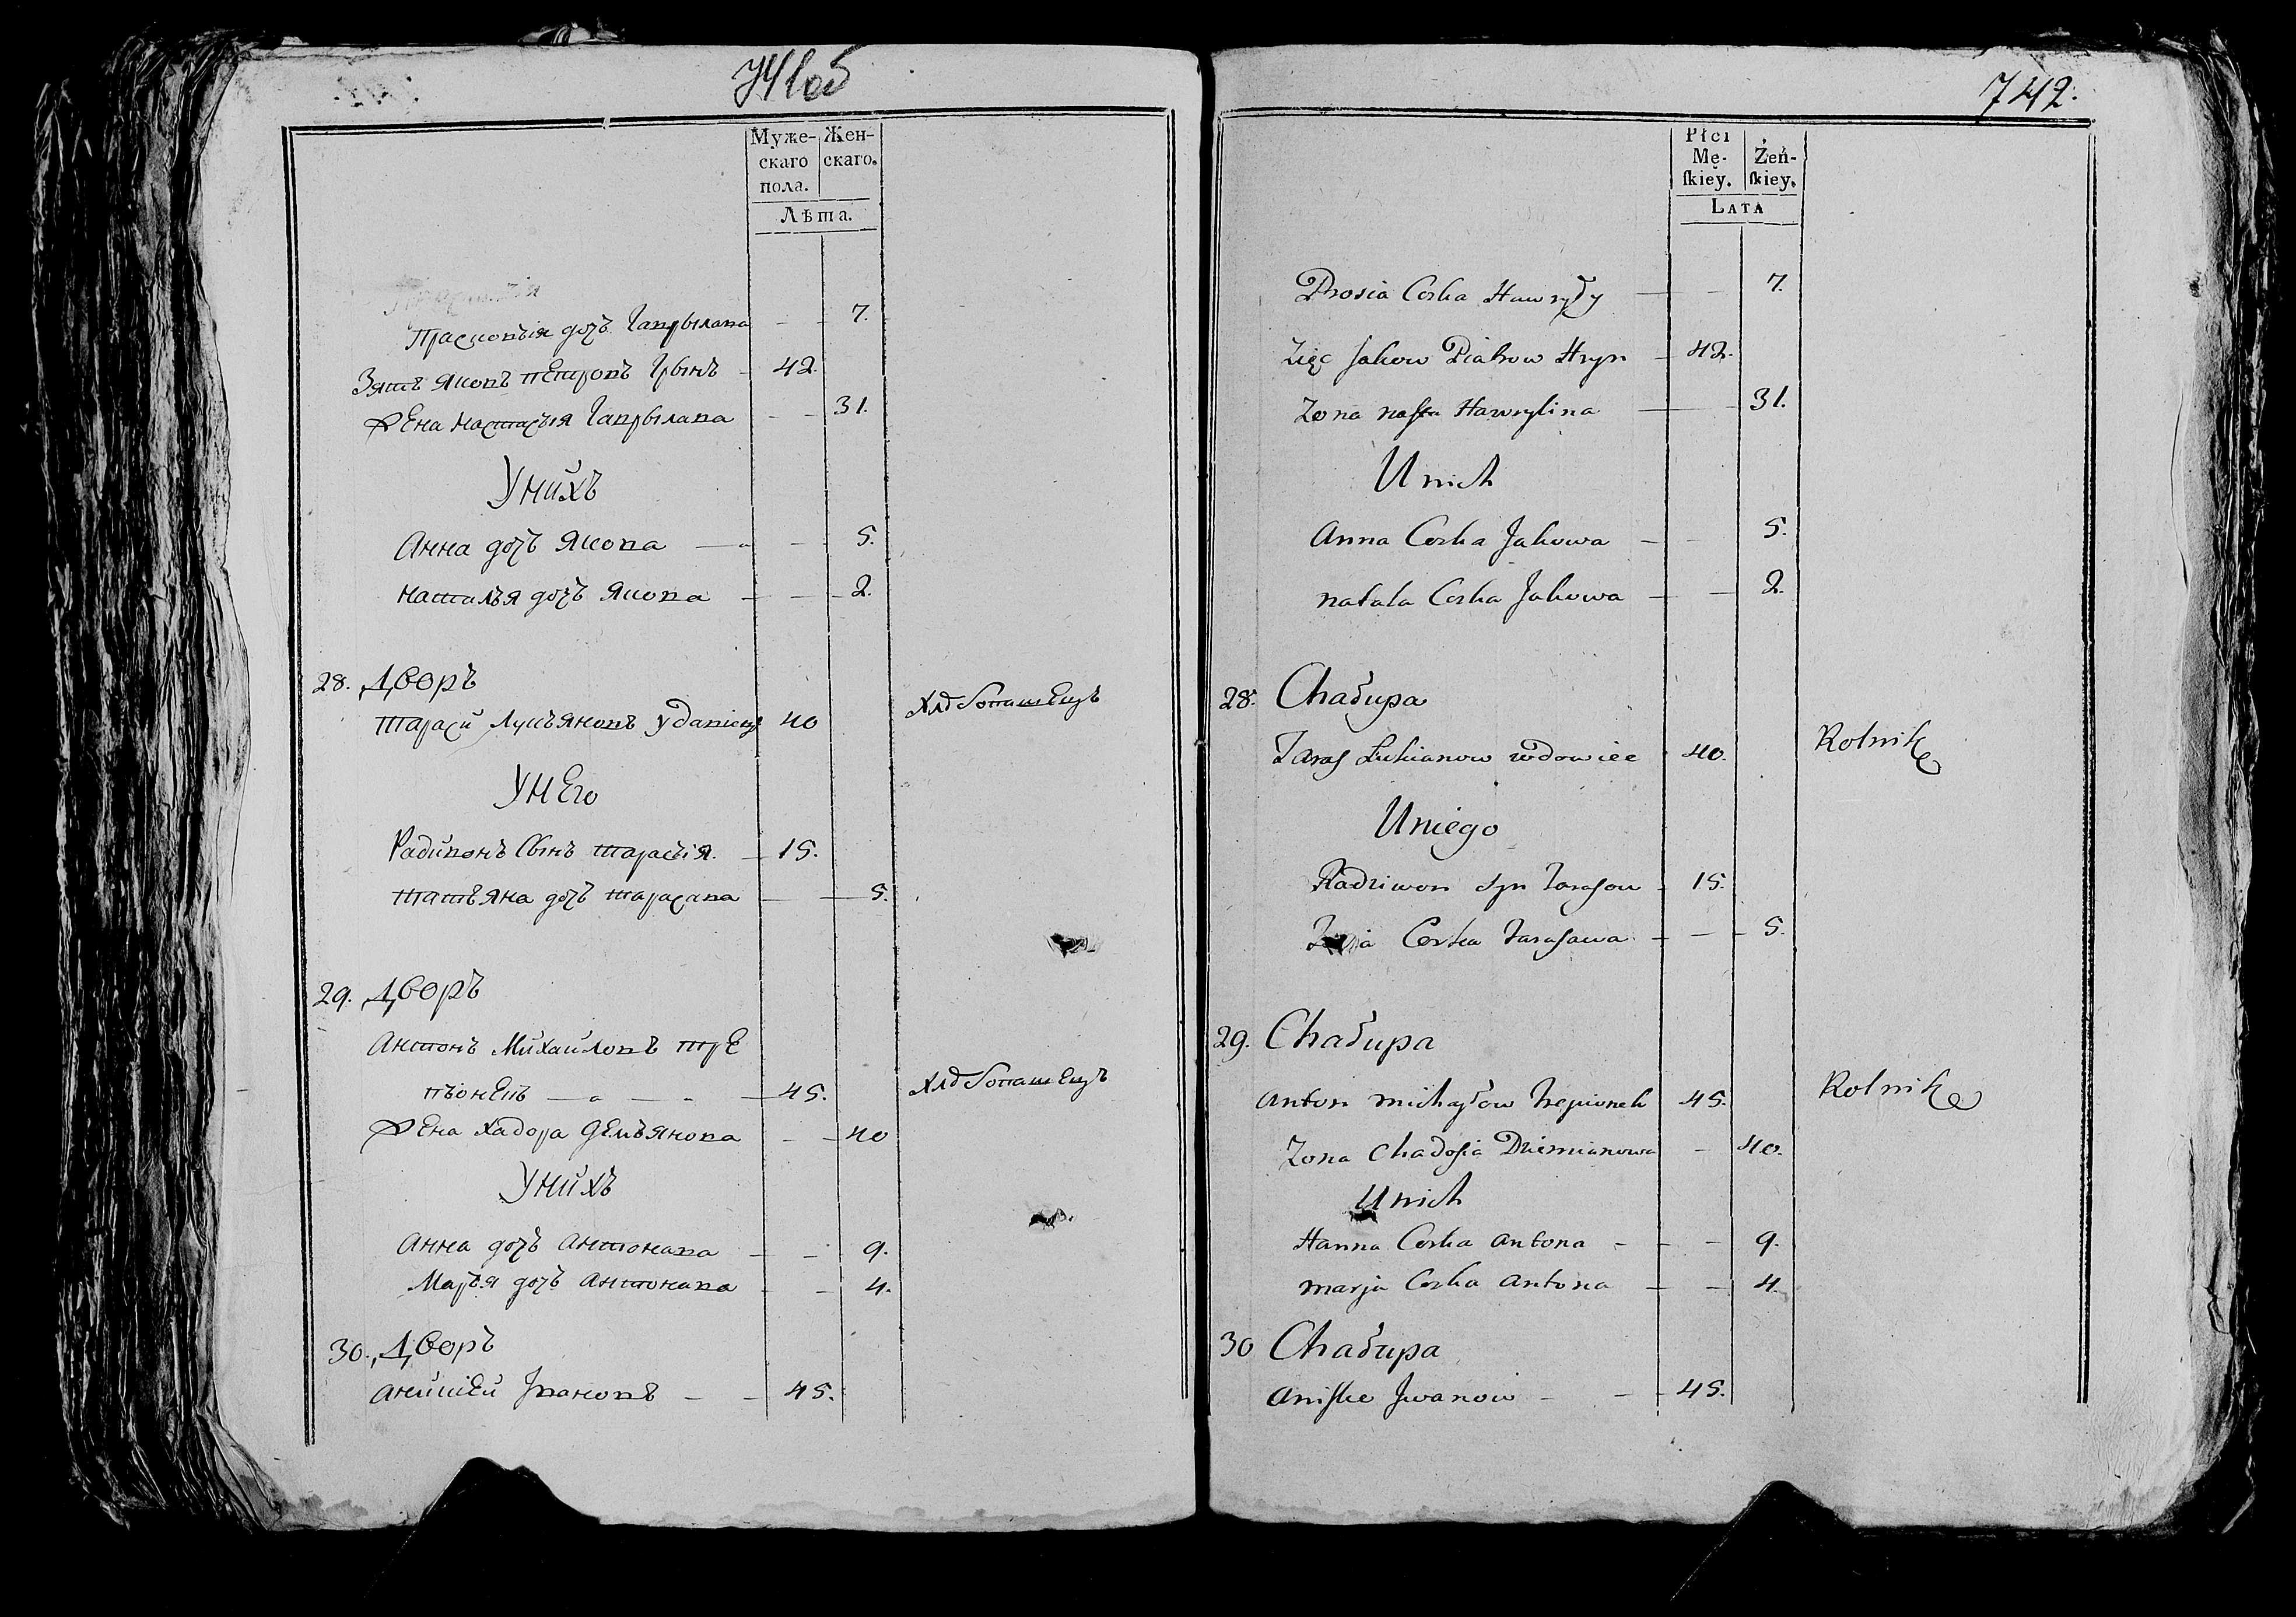 741об
Муже- Жен-
скаго скаго.
пола.
Лѣта.
Прасковія дочъ Гаврылава — — 7.
Зять Яковъ Петровъ Грынъ — 42.
Жена Настасыя Гаврылава — — 31.
У нихъ
Анна дочъ Якова — — 5.
Наталья дочъ Якова — — 2.
28. Дворъ
Тарасй Лукъяновъ удавіец 40 Хлѣбопашецъ
У Него
Радивонъ Сынъ Тарасія. — 15.
Татъяна дочъ Тарасава — — 5.
29. Дворъ
Антонъ Михайловъ тре
пъонекъ — — 45. Хлѣбопашецъ
Жена Хадора Демъянова — — 40
У нихъ
Анна дочъ Антонава — — 9.
Маръя дочъ Антонава — — 4.
30. Дворъ
Анйшкей Јвановъ — — 45.
742.
Płci
Mę- Żeń-
skiey. skiey.
LATA
Prosia Corka Hawryły — — 7.
Zięc Jakow Piatrow Hryn — 42.
Zona nasta Hawrylina — — 31.
U nich
Anna Corka Jakowa — — 5.
natala Corka Jakowa — — 2.
28. Chałupa
Taras Łukianow wdowiec 40. Rolnik
U niego
Radziwon syn Tarasow — 15.
Corka Tarasawa — — 5.
29. Chałupa
Anton michayłow Trepionek 45. Rolnik
Zona Chadosia Dziemianowa — 40.
U nich
Hanna Corka Antona — — 9.
marja Corka Antona — — 4.
30 Chałupa
Aniske Jwanow — — 45.